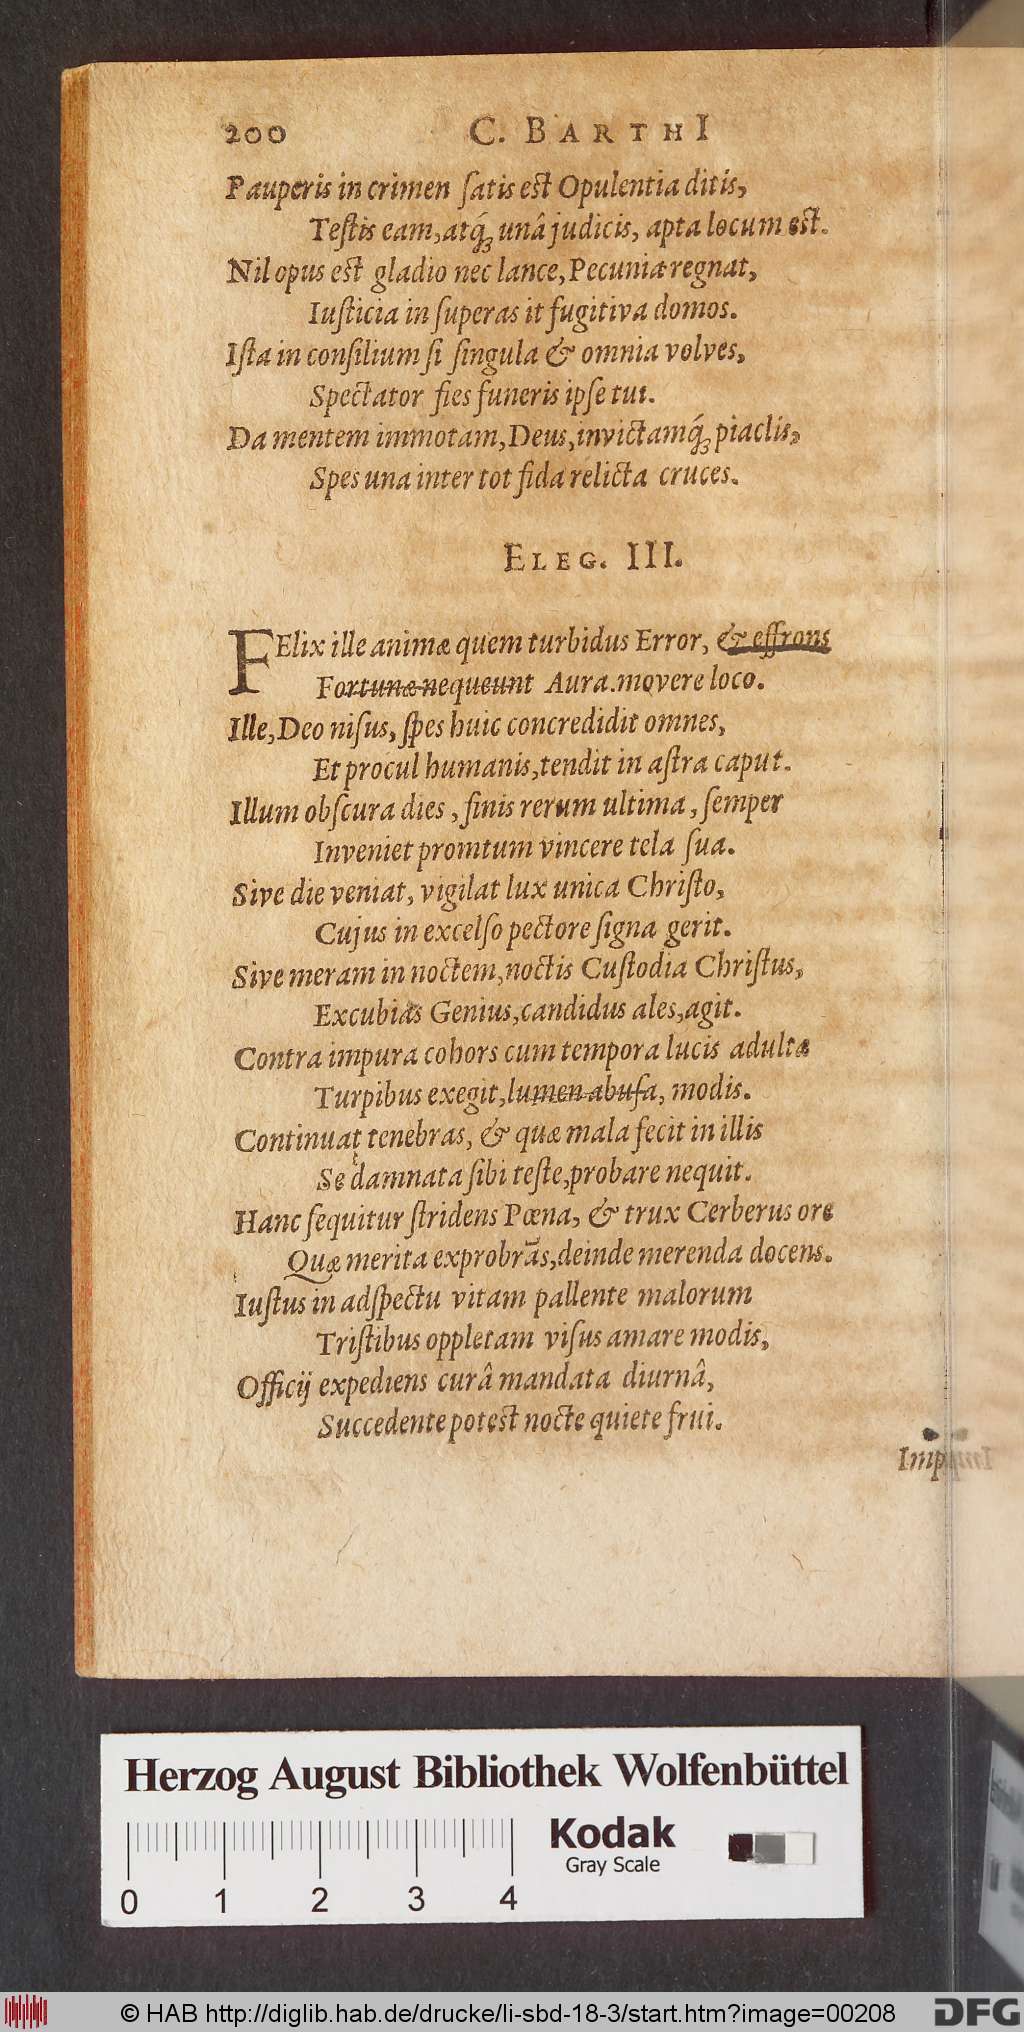 200 C. BARTHI
Pauperis in crimen ſatis est Opulentia ditis,
Teſtis eam, atq́; unâ judicis, apta locum est.
Nil opus est gladio nec lance, Pecunia regnat,
Iuſticia in ſuperas it fugitiva domos.
Iſta in conſilium ſi ſingula & omnia volves,
Spectator fies funeris ipſe tui.
Da mentem immotam, Deus, invictamq́; piaclis,
Spes una inter tot fida relicta cruces.
ELEG. III.
FElix ille animæ quem turbidus Error, & effrons
Fortunæ nequeunt Aura movere loco.
Ille, Deo niſus, ſpes huic concredidit omnes,
Et procul humanis, tendit in aſtra caput.
Illum obſcura dies, finis rerum ultima, ſemper
Inveniet promtum vincere tela ſua.
Sive die veniat, vigilat lux unica Chriſto,
Cujus in excelſo pectore ſigna gerit.
Sive meram in noctem, noctis Cuſtodia Chriſtus,
Excubias Genius, candidus ales, agit.
Contra impura cohors cum tempora lucis adultæ
Turpibus exegit, lumen abuſa, modis.
Continuat tenebras, & quæ mala fecit in illis
Se damnata ſibi teſte, probare nequit.
Hanc ſequitur ſtridens Pœna, & trux Cerberus ore
Quæ merita exprobrãs, deinde merenda docens.
Iuſtus in adſpectu vitam pallente malorum
Triſtibus oppletam viſus amare modis,
Officij expediens curâ mandata diurnâ,
Succedente potest nocte quiete frui.
Herzog August Bibliothek Wolfenbüttel
Kodak
Gray Scale
0 1 2 3 4
© HAB http://diglib.hab.de/drucke/li-sbd-18-3/start.htm?image=00208
DFG